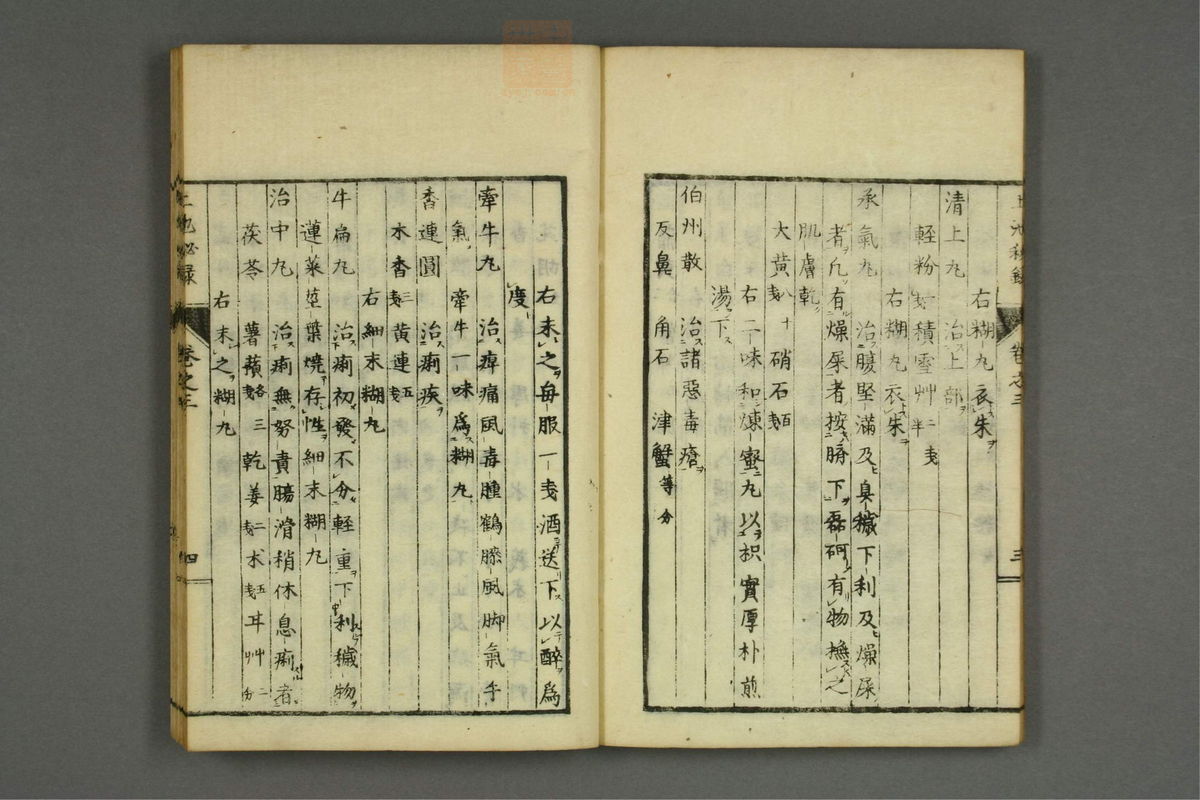 右糊丸衣朱
清上丸 治上部
輕粉 積雪艸 二戔半
右糊丸衣朱
承氣丸 治腹堅滿及臭穢下利及燥屎
者凡有燥屎者按臍下磊砢有物撫之
肌膚乾
大黄八戔 十硝石戔
右二味和煉蜜丸以枳實厚朴煎
湯下
伯州散 治諸惡毒瘡
反鼻 角石 津蟹等分
卷之三 三
右末之每服一戔酒送下以醉爲
度
牽牛丸 治痺痛風毒腫鶴膝風脚氣手
氣 牽牛一味爲糊丸
香連圓 治痢疾
木香三戔 黄連五戔
右細末糊丸
牛扁丸 治痢初發不分輕重下利穢物
蓮葉莖葉燒存性細末糊丸
治中丸 治痢無努責腸滑稍休息痢者
茯苓 薯蕷各三戔 乾姜二戔 朮五戔 耳艸二分
右末之糊丸
卷之三 四